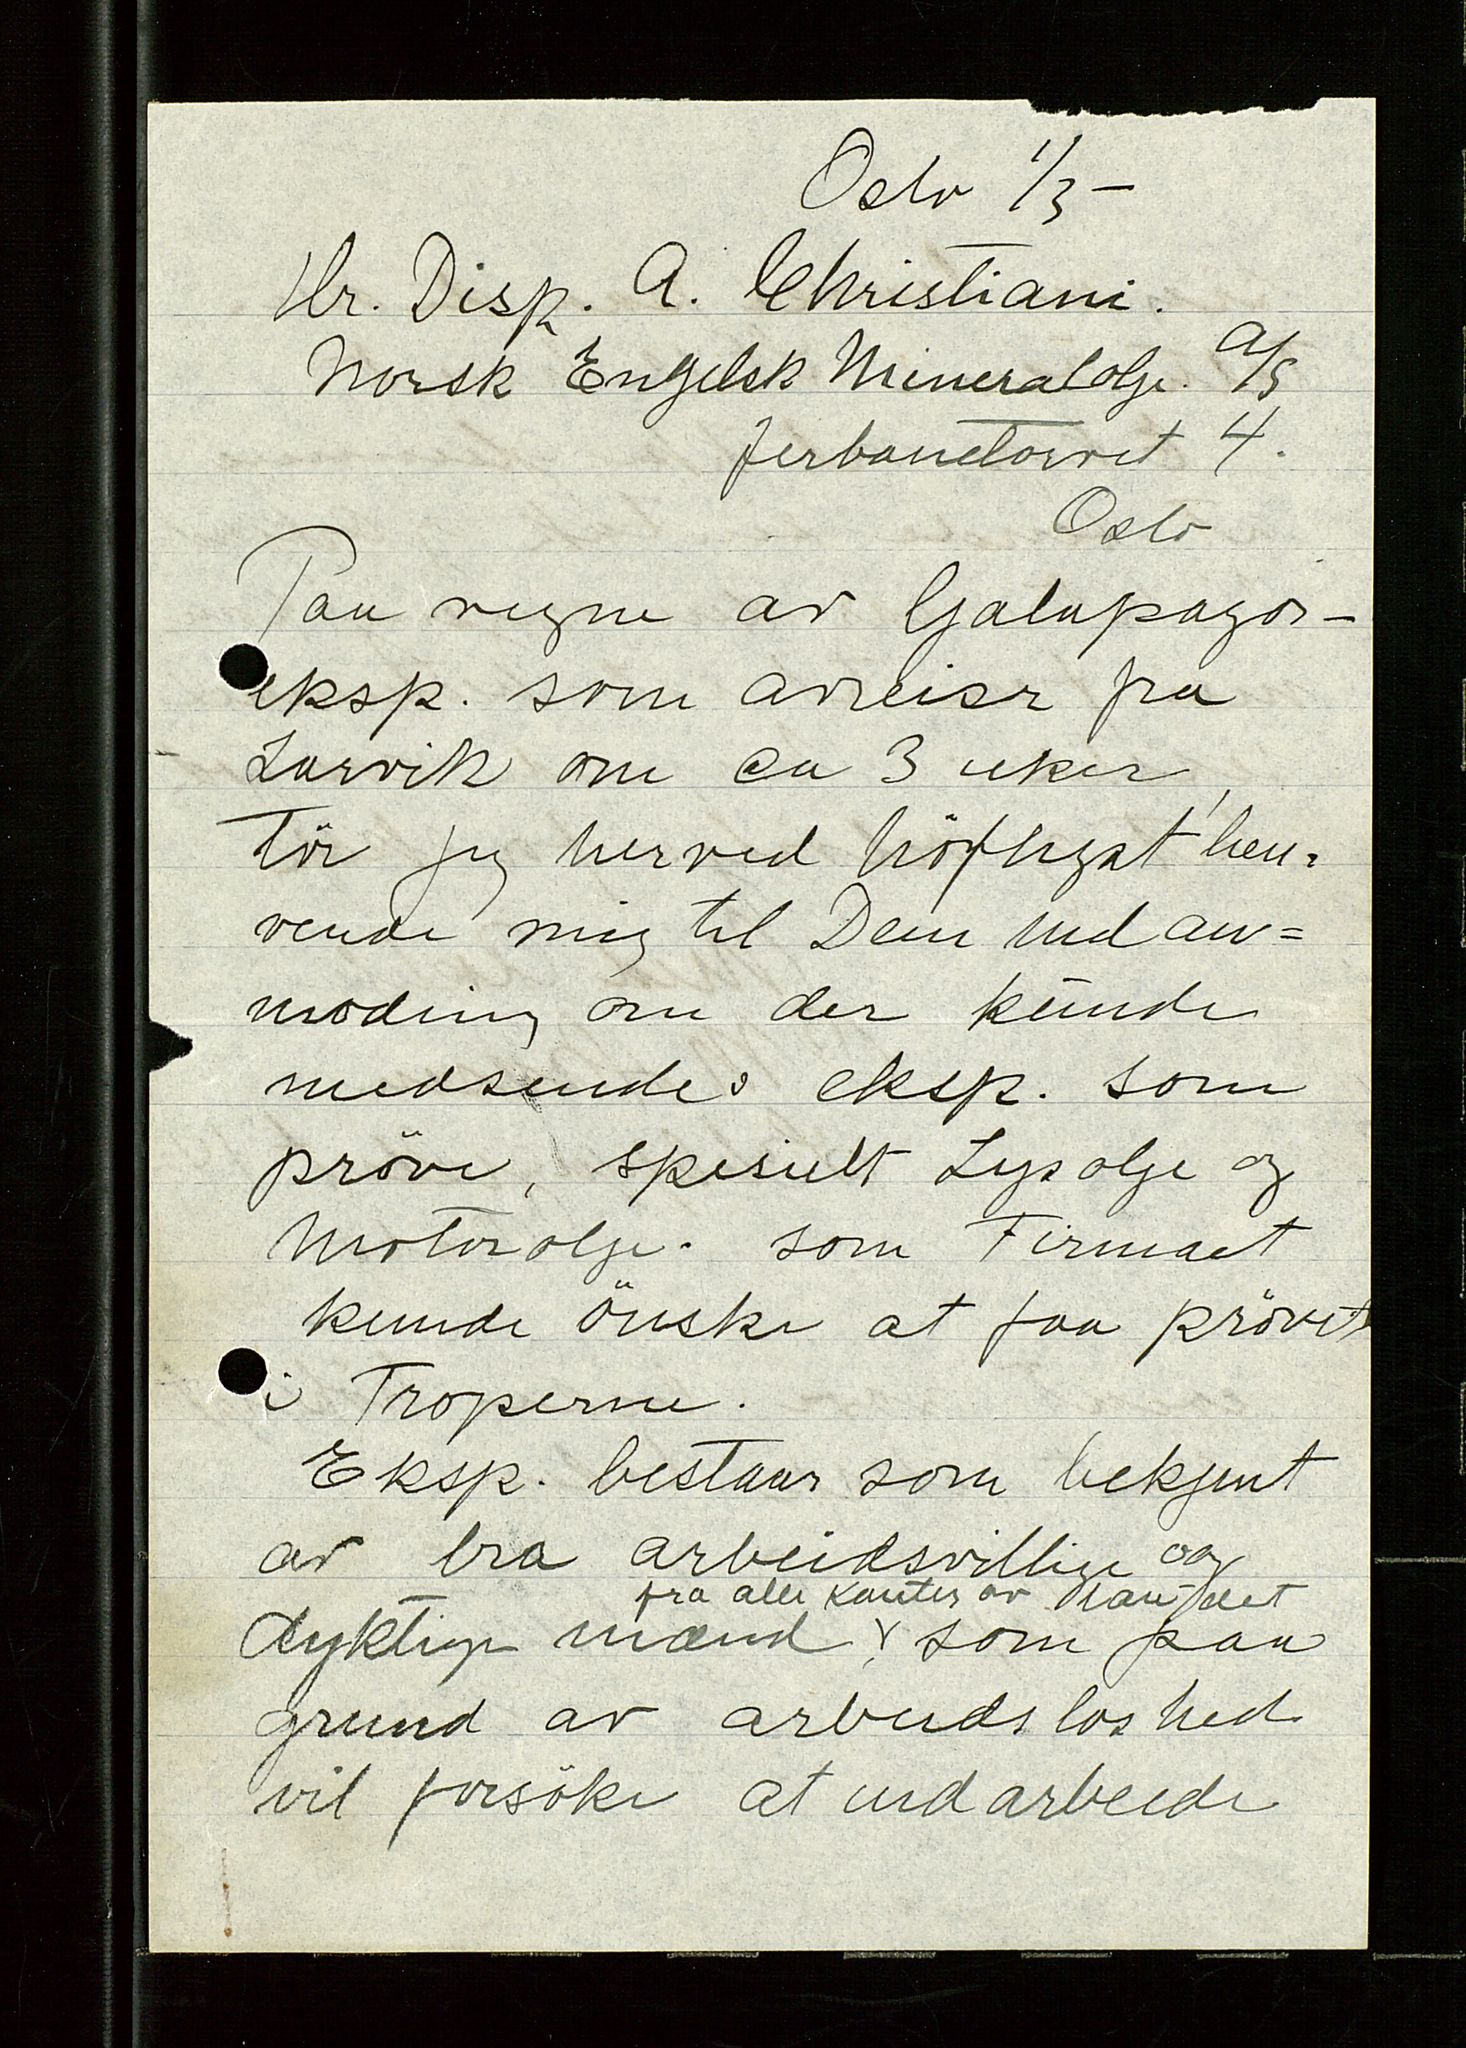 Oslo 1/3 –
Hr. Disp. A. Christiani.
Norsk Engelsk Mineralolje. A/S
Jerbanetorvet 4.
Oslo
Paa vegne av Galapagos-
eksp. som avreiser fra
Larvik om ca 3 uker,
tör jeg herved höfligst hen-
vende mig til Dem med an=
moding om der kunde
medsendes eksp. som
pröve, spesielt Lysolje og
Motorolje. som Firmaet
kunde önske at faa prövet
i Troperne.
Eksp. bestaar som bekjent
av bra arbeidsvillige og
fra alle kanter av landet
dyktige mænd, som paa
grund av arbeidsloshed
vil forsöke at utarbeide